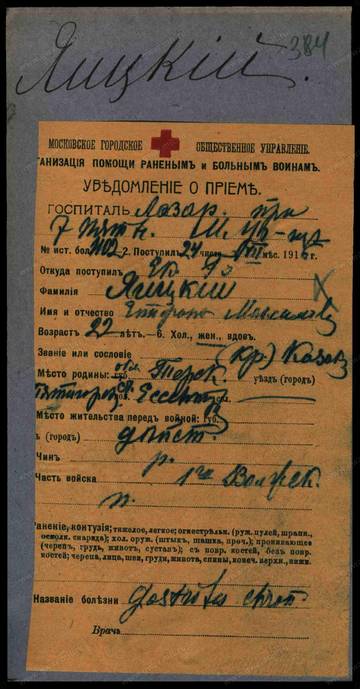 384
Яицкій.
МОСКОВСКОЕ ГОРОДСКОЕ ОБЩЕСТВЕННОЕ УПРАВЛЕНІЕ.
ГАНИЗАЦІЯ ПОМОЩИ РАНЕНЫМЪ и БОЛЬНЫМЪ ВОИНАМЪ.
УВѢДОМЛЕНІЕ О ПРІЕМѢ.
ГОСПИТАЛЬ Лазар. при
7
№ ист. бол. 2. Поступилъ 24 числа VIII мѣс. 191 г.
Откуда поступилъ
Фамилія Яицкій
Имя и отчество
Возрастъ 22 лѣтъ.—б. Хол., жен., вдов.
Званіе или сословіе (кр) Казак
Мѣсто родины: губ. обл. Терск. уѣздъ (городъ)
Пятигор. Ессент.
Мѣсто жительства передъ войной: губ.
ъ (городъ) дѣйст.
Чинъ р.
Часть войска 1го Волгск.
п.
Раненіе, контузія; тяжелое, легкое; огнестрѣльн. (руж. пулей, шрапн.,
осколк. снаряда); хол. оруж. (штыкъ, шашка, проч.); проникающее
(черепъ, грудь, животъ, суставъ); съ повр. костей, безъ повр.
костей; черепа, лица, шеи, груди, живота, спины, конеч. верхн., нижн.
Названіе болѣзни Gastritis chron.
Врачъ